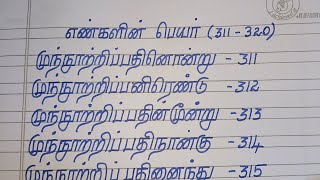 எண்களின் பெயர் (311-320)
முந்நூற்றிப்பதினொன்று - 311
முந்நூற்றிப்பனிரெண்டு - 312
முந்நூற்றிப்பதின்மூன்று - 313
முந்நூற்றிப்பதிநான்கு - 314
முந்நூற்றிப்பதினைந்து - 315